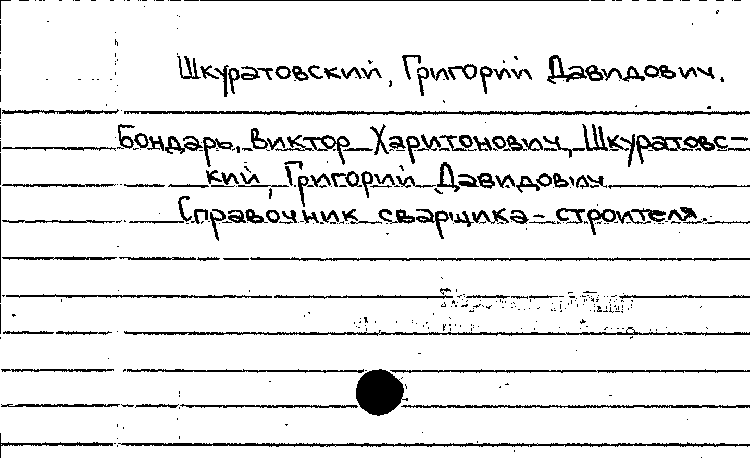 Шкуратовский, Григорий Давидович.
Бондарь, Виктор Харитонович, Шкуратовс-
кий, Григорий Давидович
Справочник сварщика-строителя.